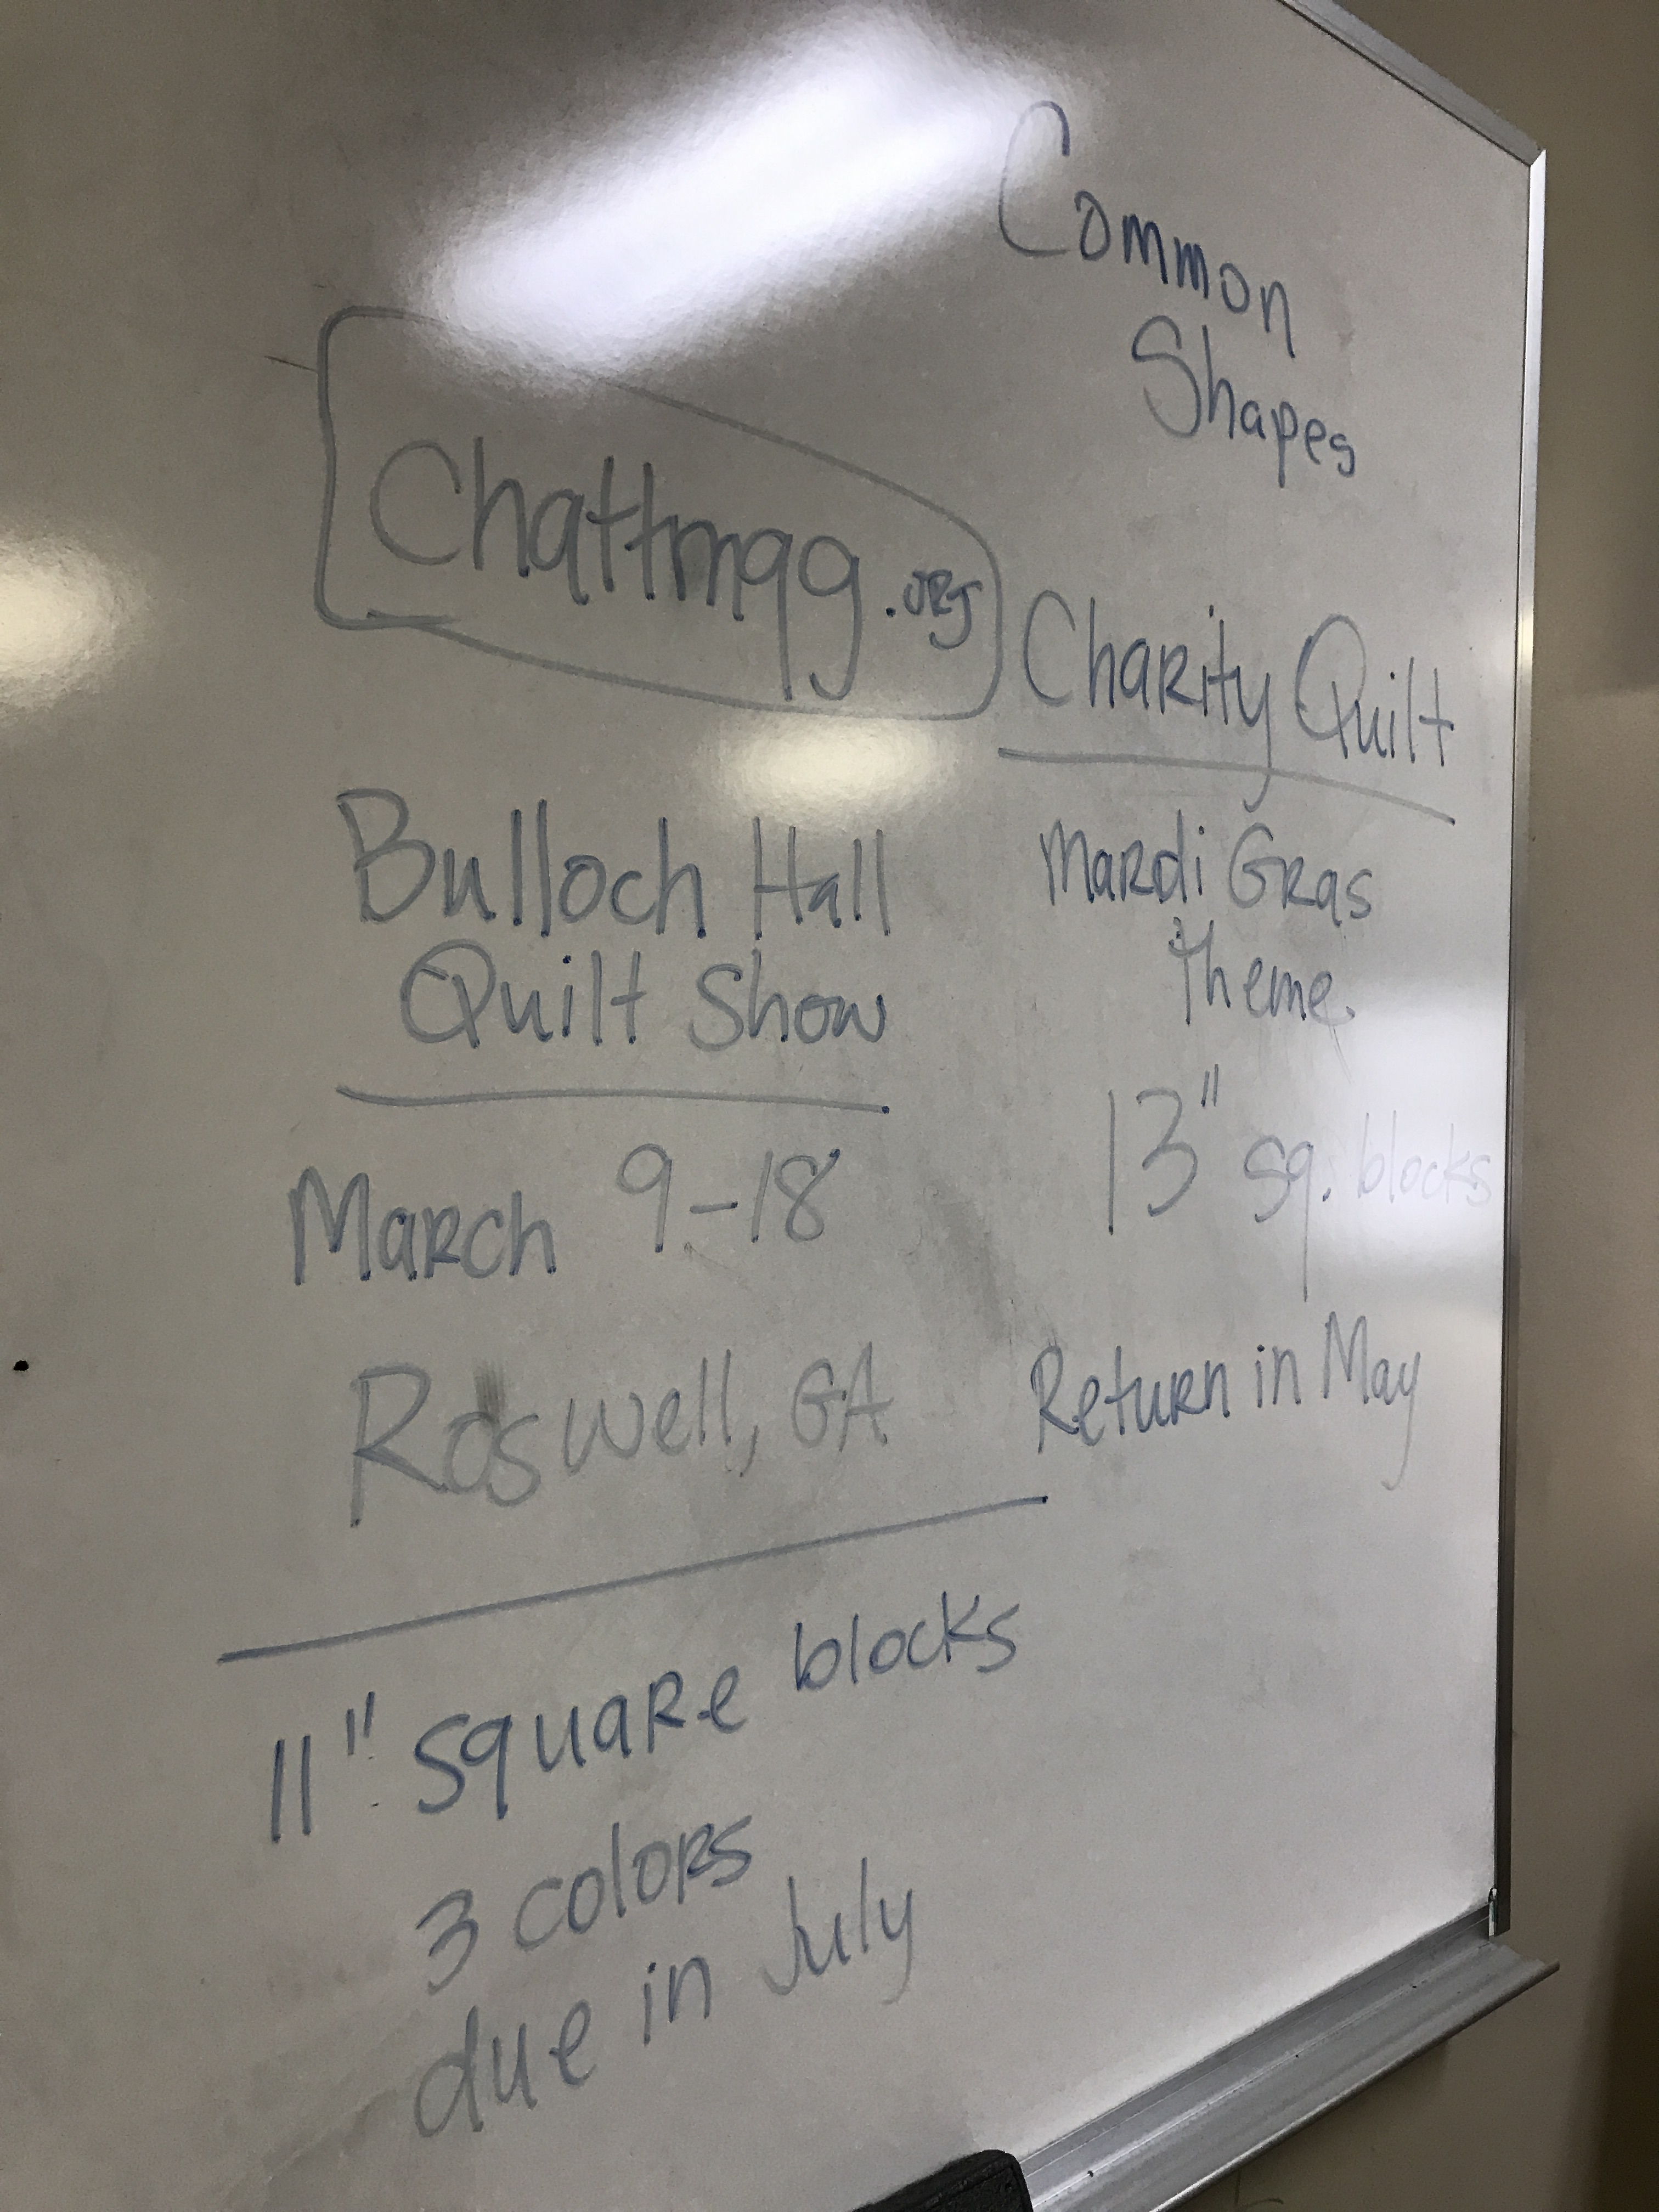 Common
Shapes
Chattmqg.org
Charity Quilt
Mardi Gras
Theme
13" sq. blocks
Return in May
Bulloch Hall
Quilt Show
March 9-18
Roswell, GA
11" square blocks
3 colors
due in July